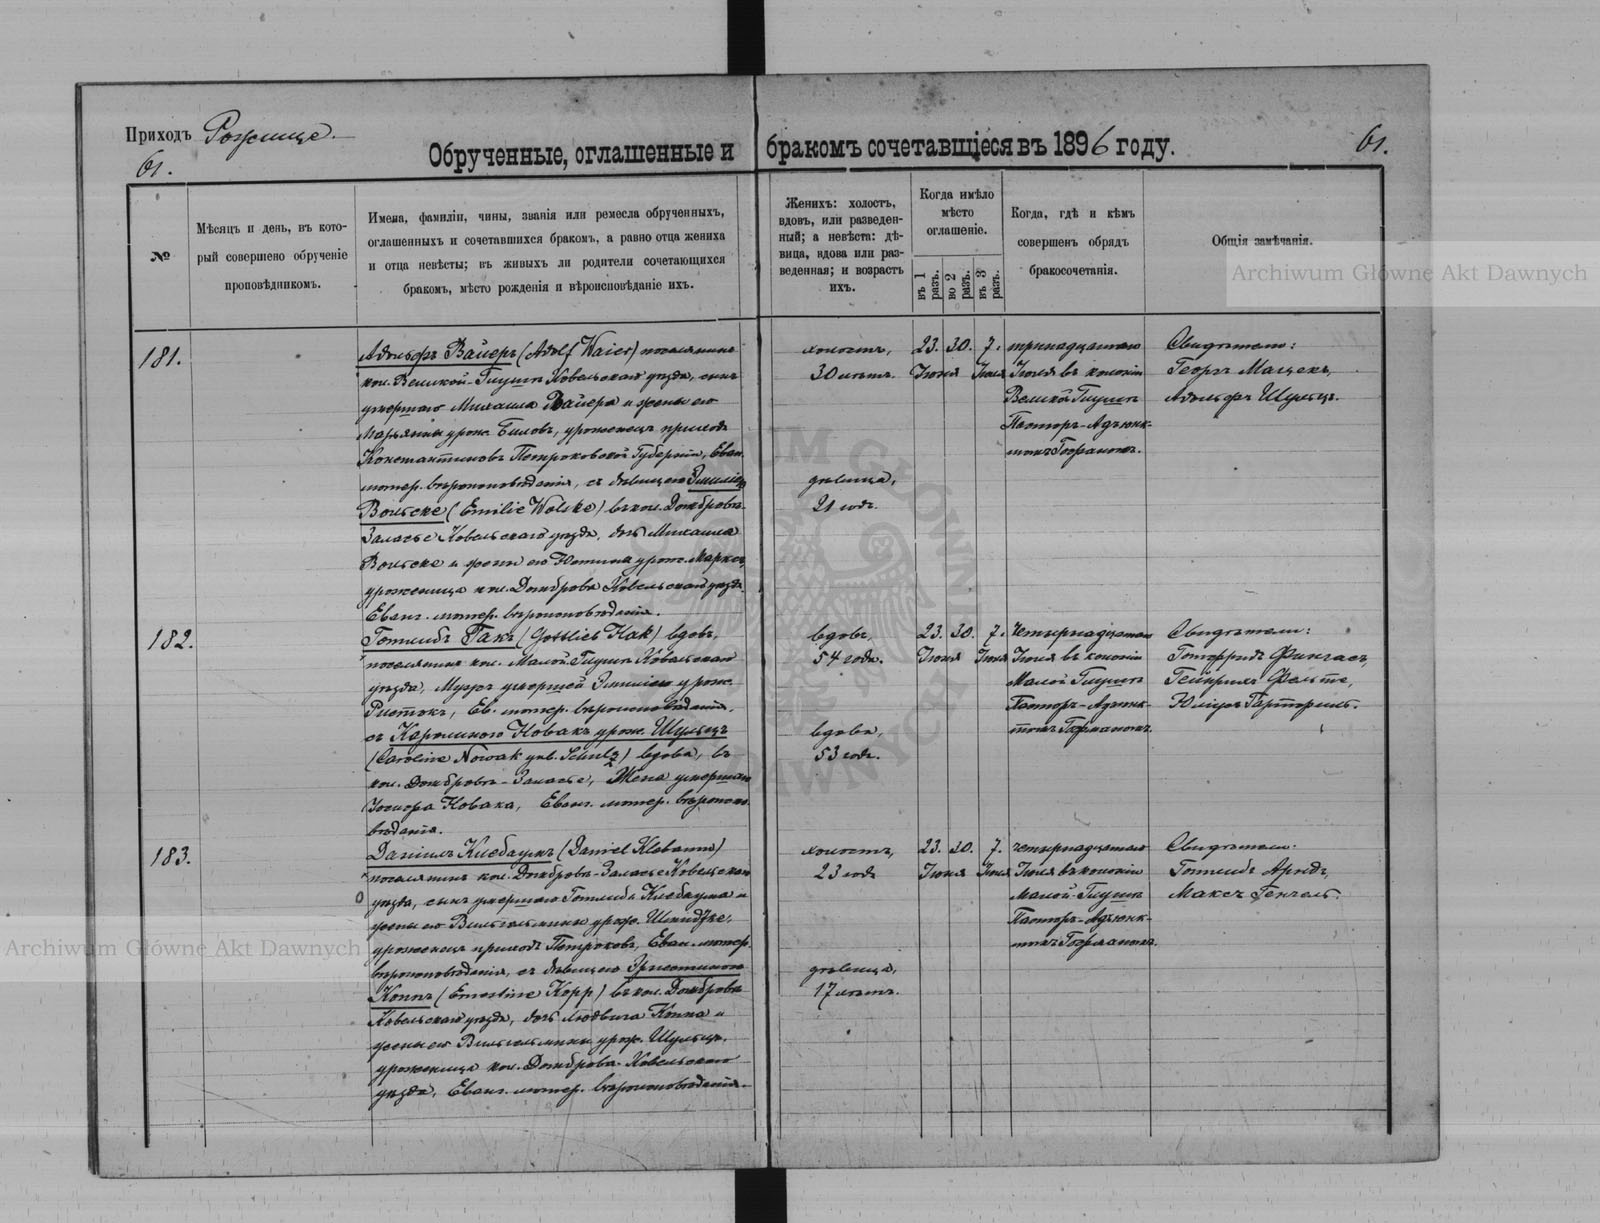 Приходъ Рожище.
61.
Обрученные, оглашенные и бракомъ сочетавшіеся въ 1896 году.
61.
№
Мѣсяцъ и день, въ кото-
рый совершено обрученіе
проповѣдникомъ.
Имена, фамиліи, чины, званія или ремесла обрученныхъ,
оглашенныхъ и сочетавшихся бракомъ, а равно отца жениха
и отца невѣсты; въ живыхъ ли родители сочетающихся
бракомъ, мѣсто рожденія и вѣроисповѣданіе ихъ.
Женихъ: холостъ,
вдовъ, или разведен-
ный; а невѣста: дѣ-
вица, вдова или раз-
веденная; и возрастъ
ихъ.
Когда имѣло
мѣсто
оглашеніе.
въ 1
разъ.
во 2
разъ.
въ 3
разъ.
Когда, гдѣ и кѣмъ
совершенъ обрядъ
бракосочетанія.
Общія замѣчанія.
Archiwum Główne Akt Dawnych
181.
Адольфъ Вайеръ (Adolf Waier) поселянинъ
кол. Великой-Глуши Ковельскаго уѣзда, сынъ
умершаго Михаила Вайера и жены его
Марьянны урож. Биловъ, уроженецъ прихода
Константиновъ Петроковской Губерніи, Еван.
лютер. вѣроисповѣданія, съ дѣвицею Эмиліею
Вольске (Emilie Wolske) въ кол. Домброва-
Заласье Ковельскаго уѣзда, дочь Михаила
Вольске и жены его Юстины урож. Марксъ,
уроженица кол. Домброва Ковельскаго уѣзда,
Еванг. лютер. вѣроисповѣданія.
холостъ,
30 лѣтъ.
дѣвица,
21 годъ.
23. 30. 7.
Іюня Іюля
тринадцатаго
Іюля въ колоніи
Великой Глушѣ
Пасторъ-Адъюнк-
томъ Гофманомъ.
Свидѣтели:
Георгъ Мацекъ,
Адольфъ Шульцъ.
182.
Готлибъ Гакъ (Gottlieb Hak) вдовъ,
поселянинъ кол. Малой-Глуши Ковельскаго
уѣзда, Мужъ умершей Эмиліи урож.
Ристокъ, Ев. лютер. вѣроисповѣданія,
съ Каролиною Новакъ урож. Шульцъ
(Caroline Nowak geb. Schulz) вдова, въ
кол. Домброва-Заласье, Жена умершаго
Новака, Еванг. лютер. вѣроиспо-
вѣданія.
вдовъ,
54 года.
вдова,
53 года.
23. 30. 7.
Іюня Іюля
четырнадцатаго
Іюля въ колоніи
Малой Глушѣ
Пасторъ-Адъюнк-
томъ Гофманомъ.
Свидѣтели:
Готфридъ Фингасъ,
Гейнрихъ Фельте,
Юліусъ
183.
Даніилъ Клебаумъ (Daniel Klebaum)
поселянинъ кол. Домброва-Заласье Ковельскаго
уѣзда, сынъ умершаго Готлиба Клебаума и
жены его Вильгельмины урож. Шмидтке,
уроженецъ прихода Петроковъ, Еван. лютер.
вѣроисповѣданія, съ дѣвицею Эрнестиною
Коппъ (Ernestine Kopp) въ кол. Домброва
Ковельскаго уѣзда, дочь Людвига Коппа и
жены его Вильгельмины урож. Шульцъ,
уроженица кол. Домброва Ковельскаго
уѣзда, Еванг. лютер. вѣроисповѣданія.
холостъ,
23 года
дѣвица,
17 лѣтъ.
23. 30. 7.
Іюня Іюля
четырнадцатаго
Іюля въ колоніи
Малой-Глушѣ
Пасторъ-Адъюнк-
томъ Гофманомъ.
Свидѣтели:
Готлибъ Арндъ,
Максъ Генчель.
Archiwum Główne Akt Dawnych